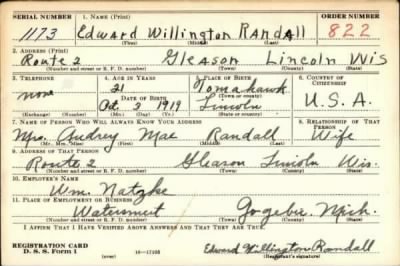 SERIAL NUMBER 1. NAME (Print) ORDER NUMBER
1173 Edward Willington Randall 822
(First) (Middle) (Last)
2. ADDRESS (Print)
Route 2 Gleason Lincoln Wis
(Number and street or R. F. D. number) (Town) (County) (State)
3. TELEPHONE 4. AGE IN YEARS 5. PLACE OF BIRTH 6. COUNTRY OF CITIZENSHIP
none 21 Tomahawk
DATE OF BIRTH (Town or county)
Oct 3 1919 Lincoln U.S.A.
(Exchange) (Number) (Mo.) (Day) (Yr.) (State or country)
7. NAME OF PERSON WHO WILL ALWAYS KNOW YOUR ADDRESS 8. RELATIONSHIP OF THAT PERSON
Mrs. Audrey Mae Randall Wife
(Mr., Mrs., Miss) (First) (Middle) (Last)
9. ADDRESS OF THAT PERSON
Route 2 Gleason Lincoln Wis.
(Number and street or R. F. D. number) (Town) (County) (State)
10. EMPLOYER'S NAME
Wm. Natzke
11. PLACE OF EMPLOYMENT OR BUSINESS
Watersmeet Gogebic Mich.
(Number and street or R. F. D. number) (Town) (County) (State)
I AFFIRM THAT I HAVE VERIFIED ABOVE ANSWERS AND THAT THEY ARE TRUE.
REGISTRATION CARD
D. S. S. Form 1 (over) Edward Willington Randall
(Registrant's signature)